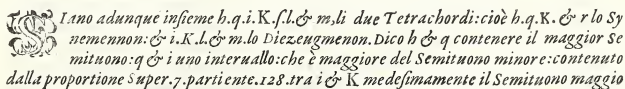 SIano adunque insieme h.q.i.K.ſ.l.& m,li due Tetrachordi:cioè h.q.K.& r lo Sy
nemennon:& i.K.l.& m.lo Diezeugmenon.Dico h & q contenere il maggior Se
mituono:q & i uno interuallo:che è maggiore del Semituono minore:contenuto
dalla proportione Super.7.partiente.128.tra i & K medeſimamente il Semituono maggio